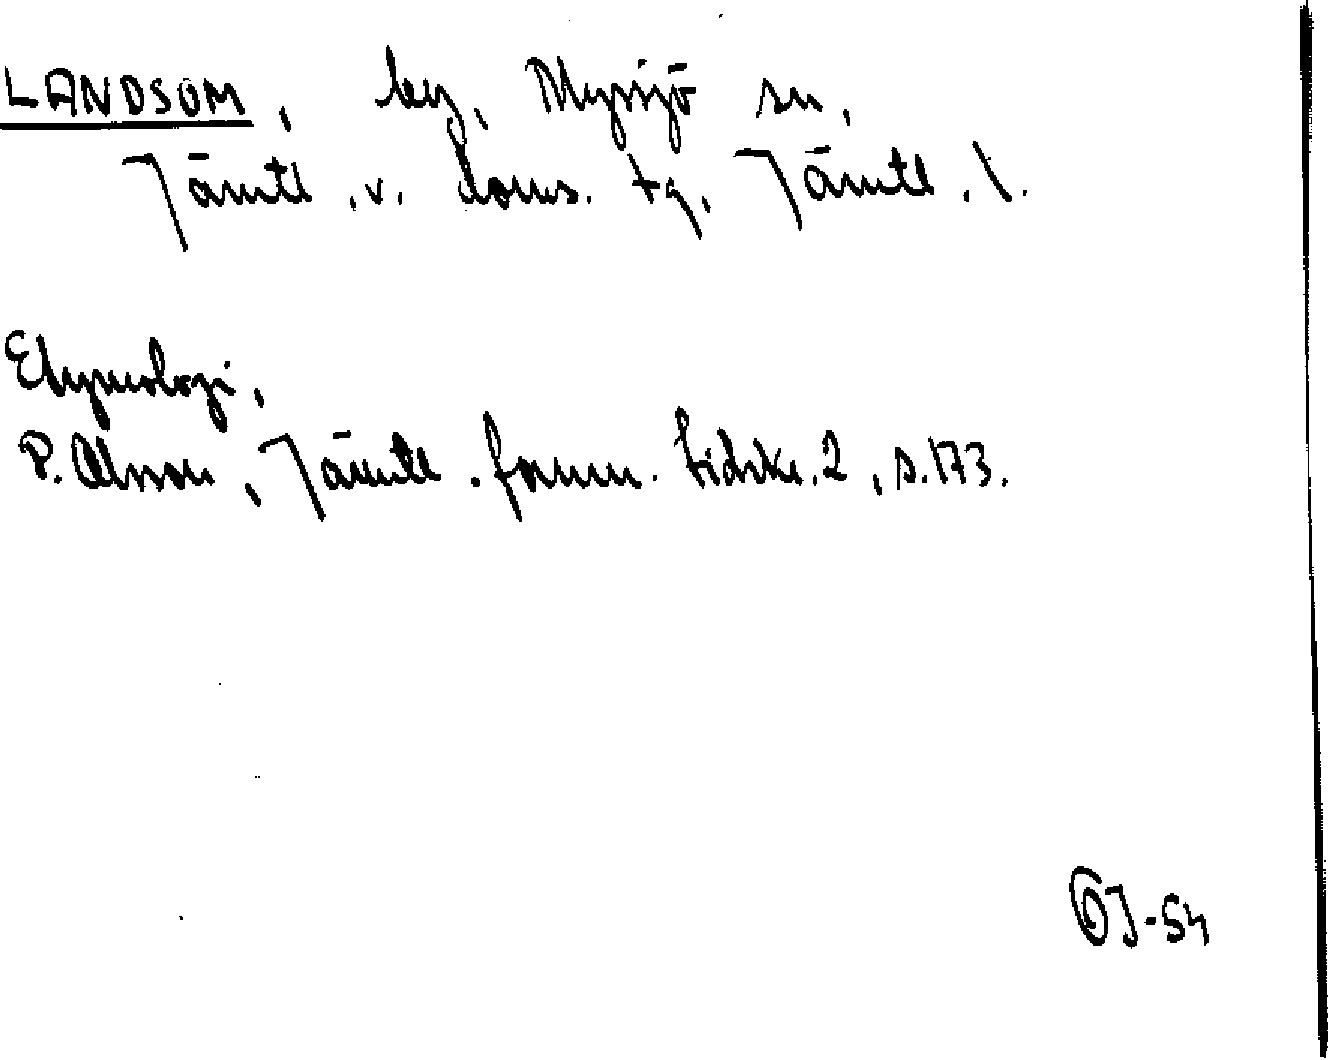 LANDSOM, by, Myssjö sn,
Jämtl. v. doms. tg, Jämtl. l.
Etymologi,
P. Olsson, Jämtl. fornm. tidskr. 2, s. 173.